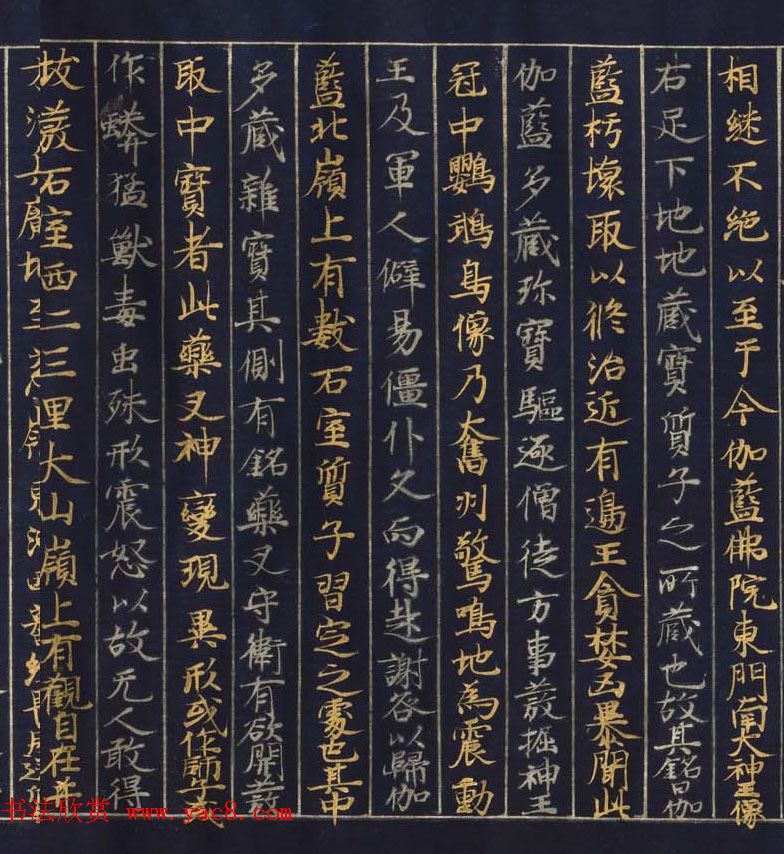 相継不絶以至于今伽藍佛院東門南大神王像
右足下地地蔵寶質子之所蔵也故其銘曰伽
藍朽壞取以修治近有邊王貪婪凶暴聞此
伽藍多蔵珎寶驅逐僧徒方事發掘神王
冠中鸚鵡鳥像乃奮羽驚鳴地為震動
王及軍人僻易僵仆久而得起謝咎以歸伽
藍北嶺上有數石室質子習定之處也其中
多蔵雜寶其側有銘藥叉守衛有欲開發
取中寶者此藥叉神變現異形或作師子或
作蟒猛獸毒虫殊形震怒以故无人敢得
石西二三里大山嶺上有觀自在菩
书法欣赏 www.yac8.com